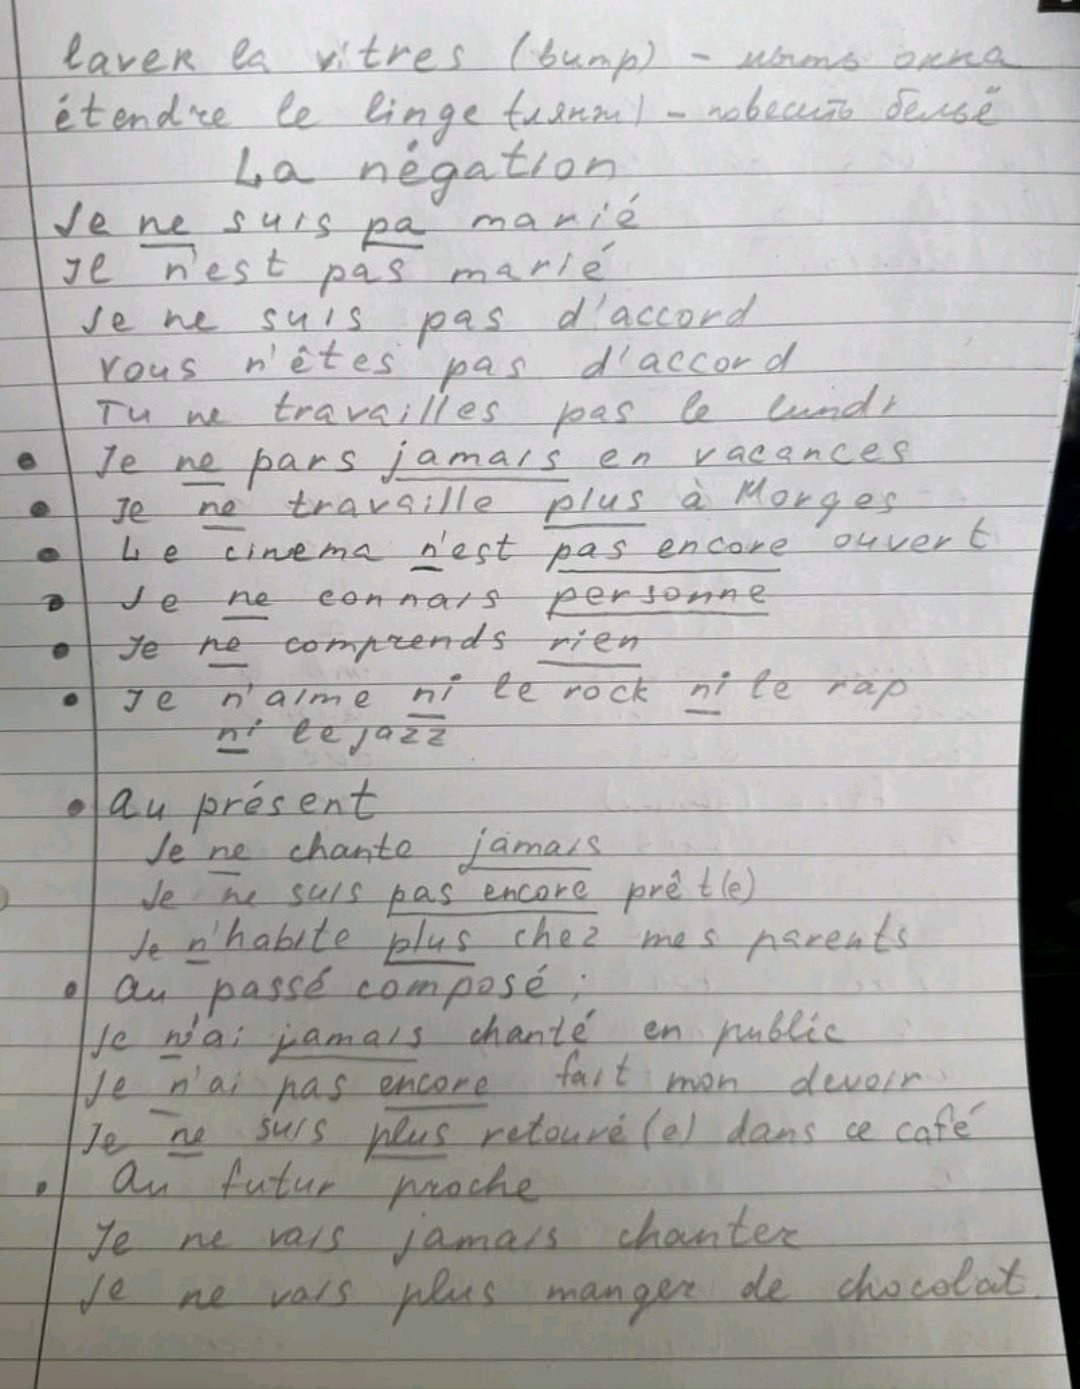 laver la vitres (витр) - мыть окна
étendre le linge (лянж) - повесить бельё
La négation
Je ne suis pa marié
Il n'est pas marié
Je ne suis pas d'accord
vous n'êtes pas d'accord
Tu ne travailles pas le lundi
Je ne pars jamais en vacances
Je ne travaille plus à Morges
Le cinema n'est pas encore ouvert
Je ne connais personne
Je ne comprends rien
Je n'aime ni le rock ni le rap
ni le jazz
au présent
Je ne chante jamais
Je ne suis pas encore prêt(e)
Je n'habite plus chez mes parents
au passé composé;
Je n'ai jamais chanté en public
Je n'ai pas encore fait mon devoir
Je ne suis plus retouré(e) dans ce café
au futur proche
Je ne vais jamais chanter
Je ne vais plus manger de chocolat.